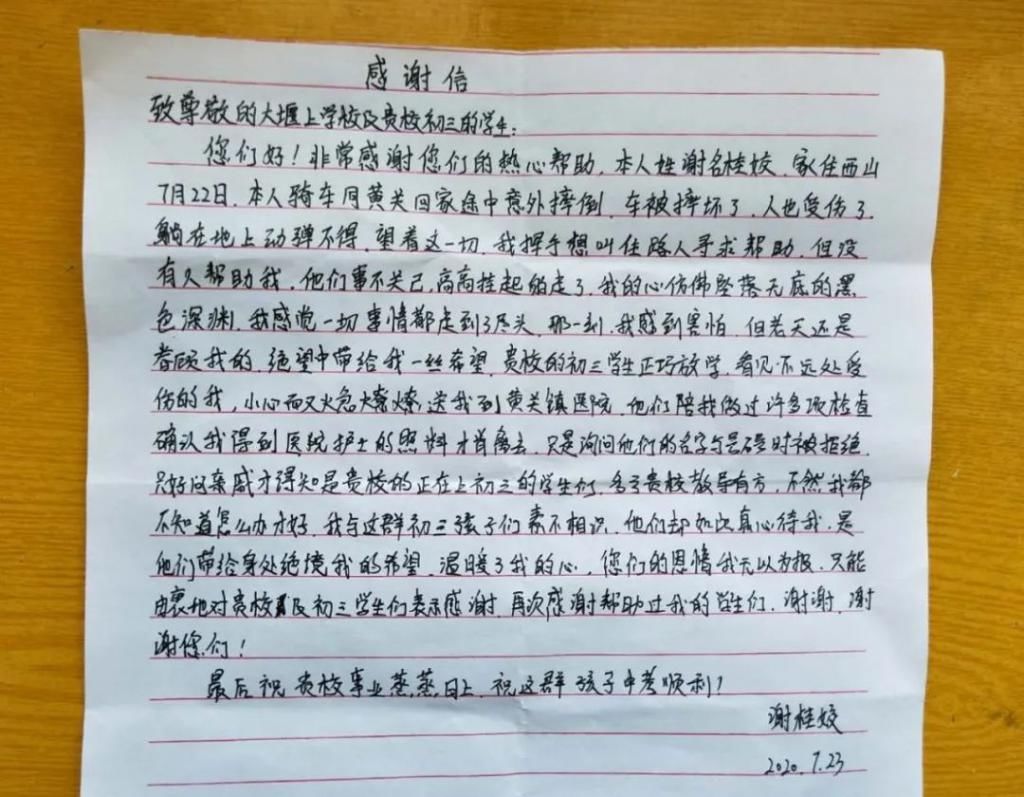 感谢信
致尊敬的大堰上学校及贵校初三的学生：
您们好！非常感谢您们的热心帮助，本人姓谢名桂姣，家住西山
7月22日，本人骑车同黄关回家途中意外摔倒，车被摔坏了，人也受伤了
躺在地上动弹不得，望着这一切，我挥手想叫住路人寻求帮助，但没
有人帮助我，他们事不关己，高高挂起的走了，我的心仿佛坠落无底的黑
色深渊，我感觉一切事情都走到了尽头，那一刻，我感到害怕，但老天还是
眷顾我的，绝望中带给我一丝希望，贵校的初三学生正巧放学，看见不远处受
伤的我，小心而又火急火燎燎送我到黄关镇医院，他们陪我做过许多项检查
确认我得到医院护士的照料才肯离去，只是询问他们的名字与号码时被拒绝，
只好问亲戚才得知是贵校的正在上初三的学生们，多亏贵校教导有方，不然我都
不知道怎么办才好，我与这群初三孩子们素不相识，他们却如此真心待我，是
他们带给身处绝境我的希望，温暖了我的心，您们的恩情我无以为报，只能
由衷地对贵校及初三学生们表示感谢，再次感谢帮助过我的学生们，谢谢，谢
谢您们！
最后祝贵校事业蒸蒸日上，祝这群孩子中考顺利！
谢桂姣
2020.7.23